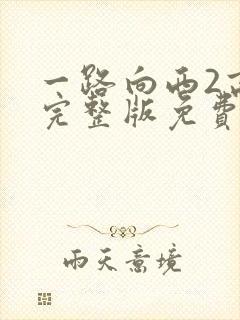 一路向西2高
完整版免费
雨天意境